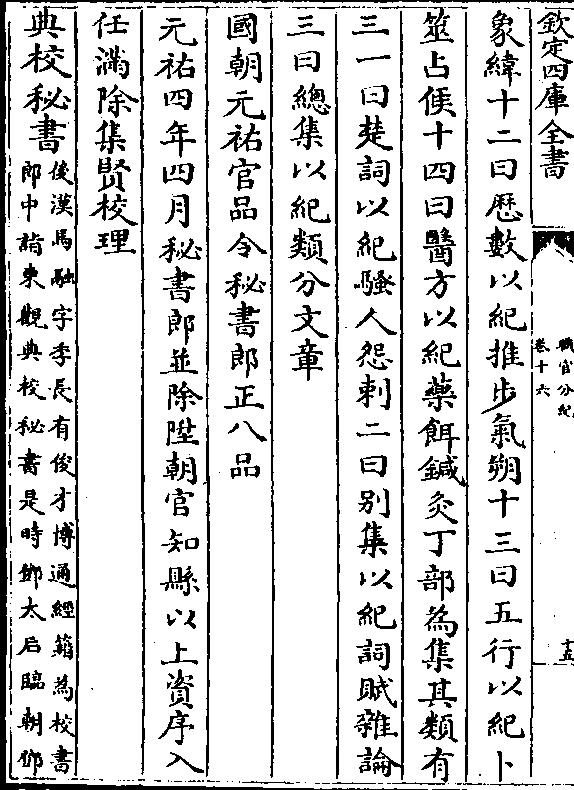 欽定四庫全書
職官分紀
卷十六
十五
象緯十二曰歷數以紀推步氣朔十三曰五行以紀卜
筮占候十四曰醫方以紀藥餌鍼灸丁部為集其類有
三一曰楚詞以紀騷人怨刺二曰别集以紀詞賦雜論
三曰總集以紀類分文章
國朝元祐官品令秘書郎正八品
元祐四年四月秘書郎並除陞朝官知縣以上資序入
任滿除集賢校理
典校秘書
後漢馬融字季長有俊才博通經籍為校書
郎中詣東觀典校秘書是時鄧太后臨朝鄧